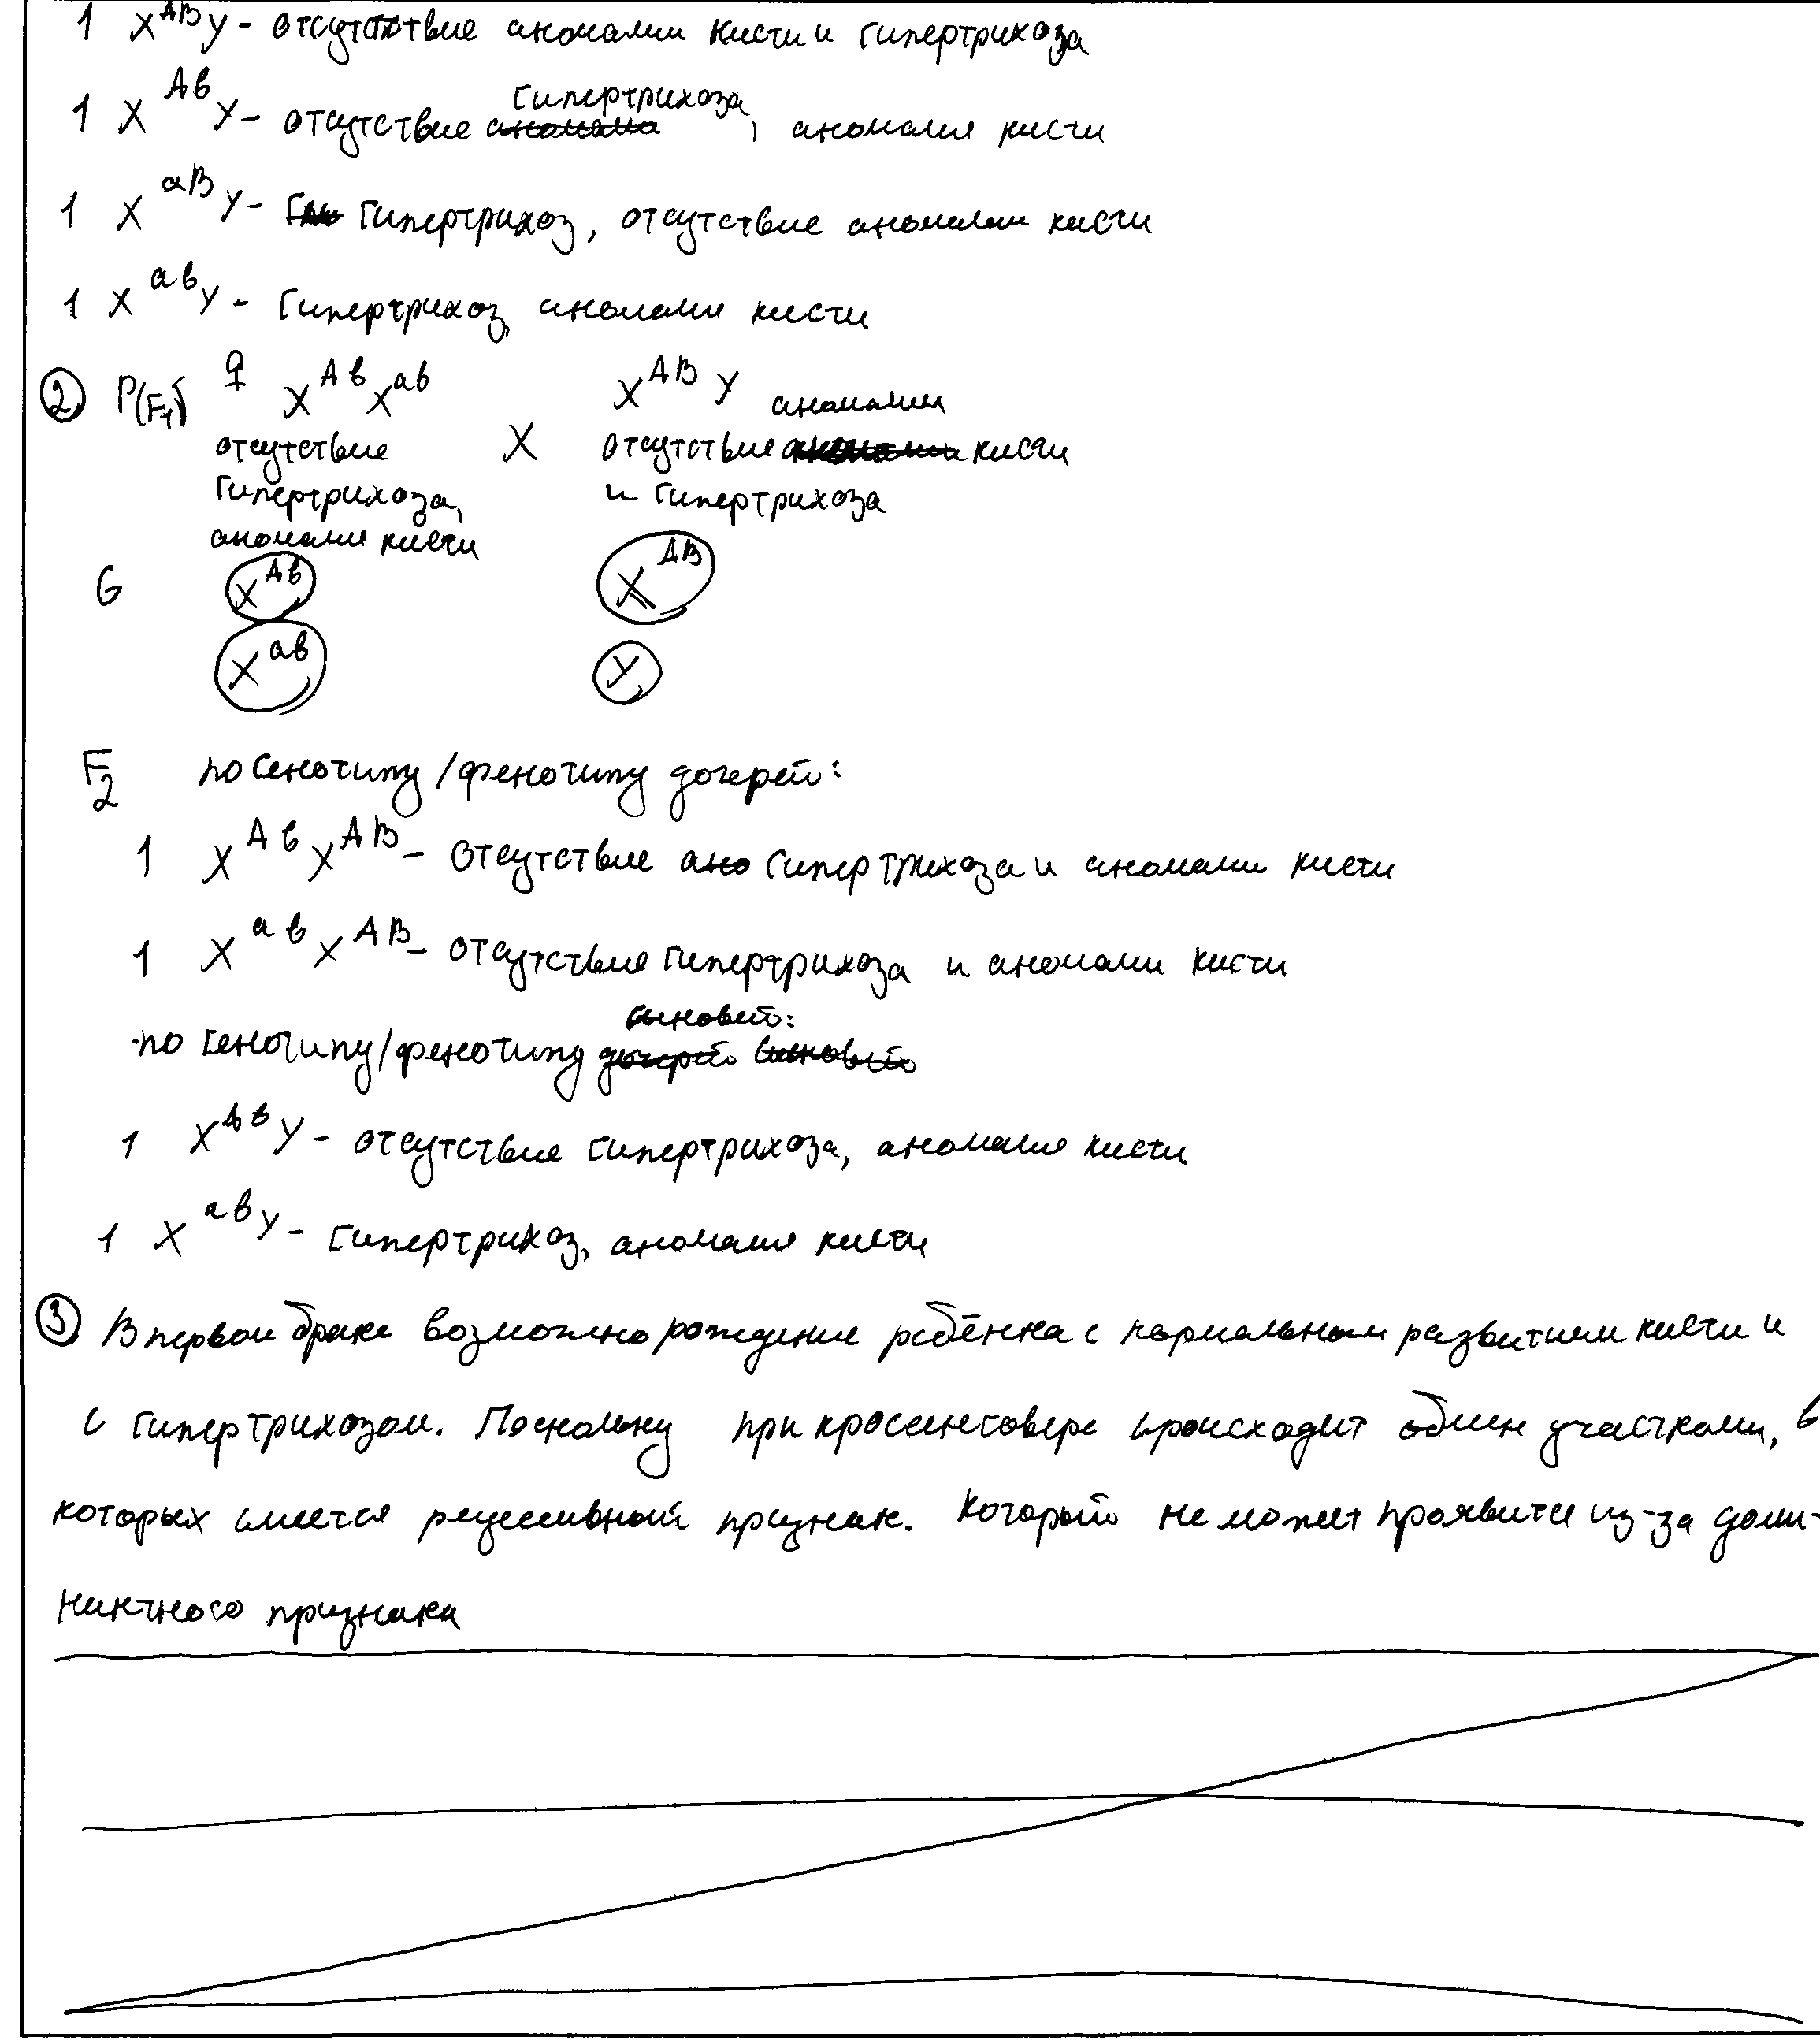 1 X^AB Y - отсутствие аномалии кисти и гипертрихоза
1 X^Aв Y - отсутствие гипертрихоза, аномалия кисти
1 X^аB Y - Гипертрихоз, отсутствие аномалии кисти
1 X^ав Y - Гипертрихоз, аномалия кисти
② P(F1) ♀ X^Aв X^ав X^AB Y
отсутствие X отсутствие аномалии кисти
гипертрихоза, и гипертрихоза
аномалия кисти
G X^Aв X^AB
X^ав Y
F2 по генотипу/фенотипу дочерей:
1 X^Aв X^AB - отсутствие гипертрихоза и аномалии кисти
1 X^ав X^AB - отсутствие гипертрихоза и аномалии кисти
по генотипу/фенотипу сыновей:
1 X^Aв Y - отсутствие гипертрихоза, аномалия кисти
1 X^ав Y - Гипертрихоз, аномалия кисти
③ В первом браке возможно рождение ребёнка с нормальным развитием кисти и
с гипертрихозом. Поскольку при кроссинговере происходит обмен участками, в
которых имеется рецессивный признак. Который не может проявится из-за доми-
нантного признака